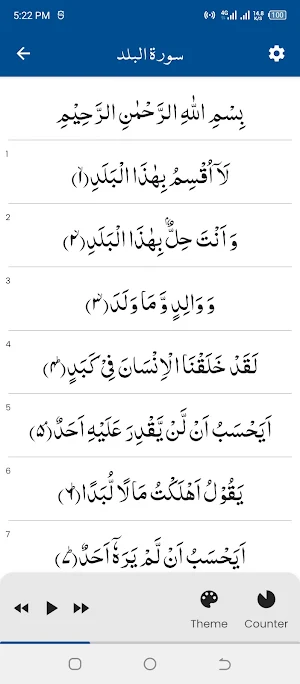 5:22 PM
4G 14.8 K/s 100
سورة البلد
بِسْمِ اللّٰهِ الرَّحْمٰنِ الرَّحِيْمِ
1
لَاۤ اُقْسِمُ بِهٰذَا الْبَلَدِ(۱)
2
وَ اَنْتَ حِلٌّۢ بِهٰذَا الْبَلَدِ(۲)
3
وَ وَالِدٍ وَّ مَا وَلَدَ(۳)
4
لَقَدْ خَلَقْنَا الْاِنْسَانَ فِیْ كَبَدٍ(۴)
5
اَیَحْسَبُ اَنْ لَّنْ یَّقْدِرَ عَلَیْهِ اَحَدٌ(۵)
6
یَقُوْلُ اَهْلَكْتُ مَالًا لُّبَدًا(۶)
7
اَیَحْسَبُ اَنْ لَّمْ یَرَهٗۤ اَحَدٌ(۷)
Theme Counter